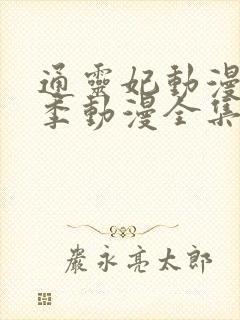 通靈妃動漫
季動漫全集
嚴永亮太郎